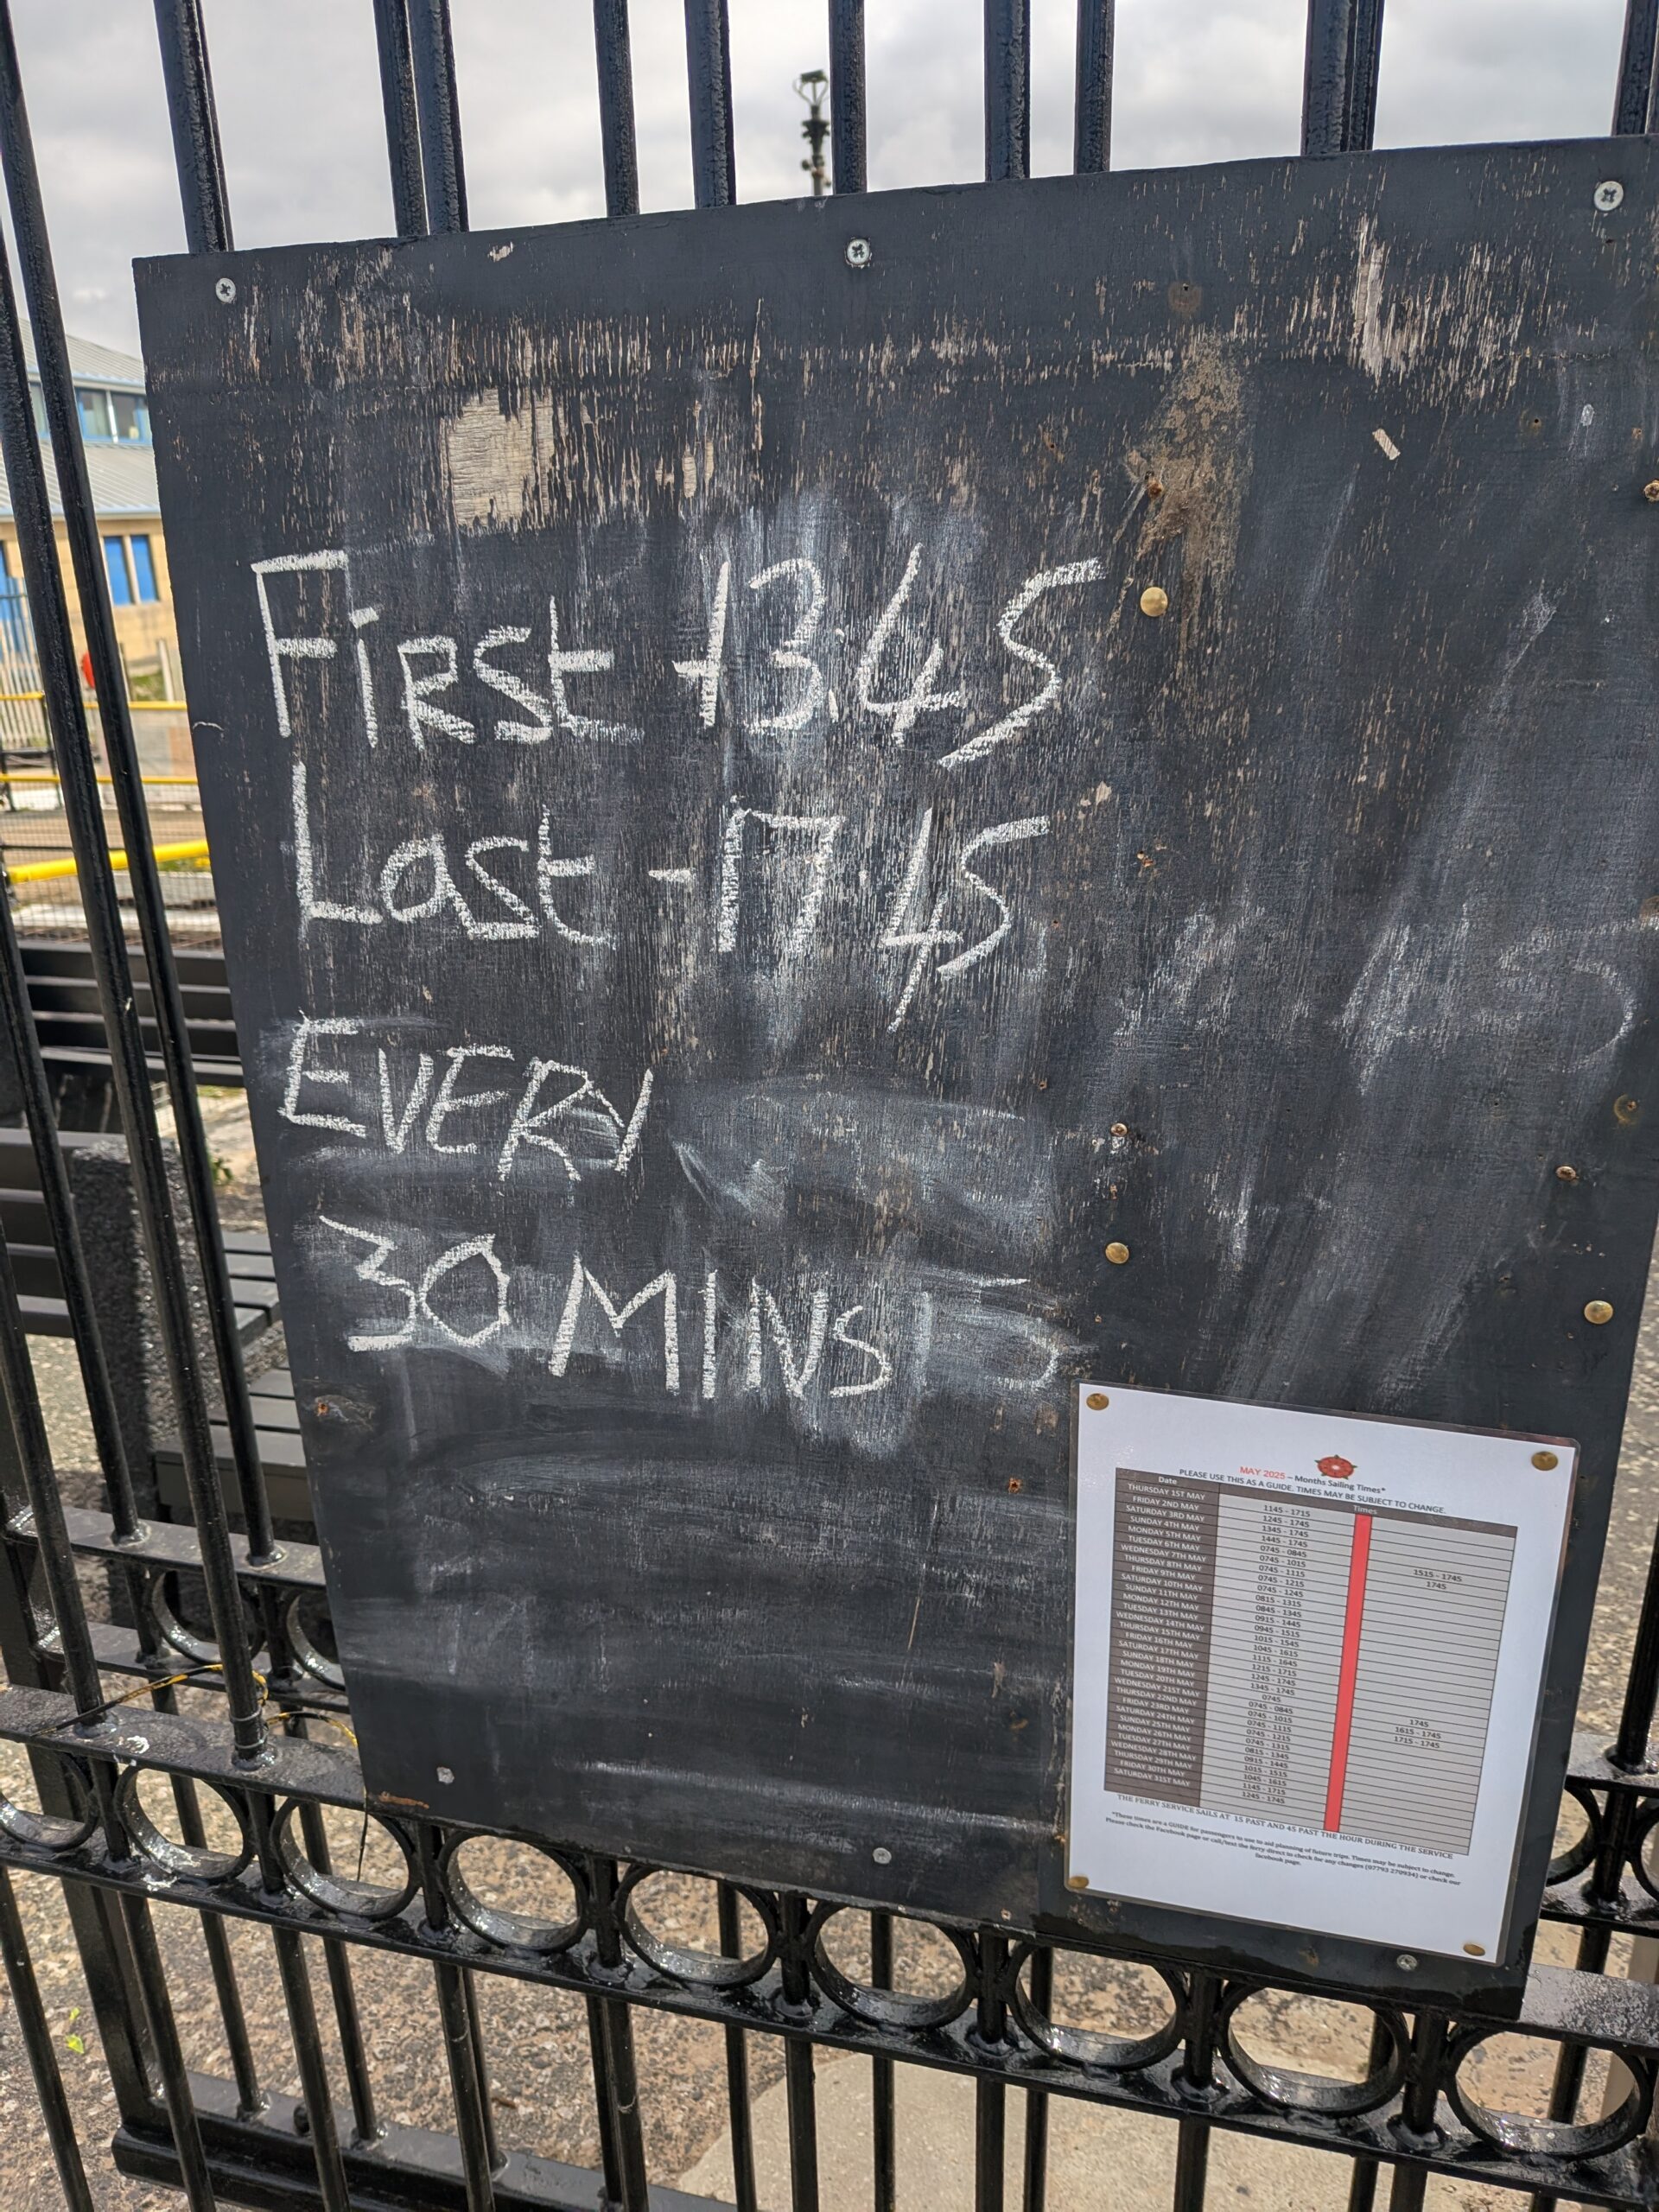 First - 13:45
Last - 17 45
EVERY
30 MINS
MAY 2025 – Months Sailing Times*
PLEASE USE THIS AS A GUIDE. TIMES MAY BE SUBJECT TO CHANGE.
Date Times
THURSDAY 1ST MAY 1145 - 1715
FRIDAY 2ND MAY 1245 - 1745
SATURDAY 3RD MAY 1345 - 1745
SUNDAY 4TH MAY 1445 - 1745
MONDAY 5TH MAY 0745 - 0845 1515 - 1745
TUESDAY 6TH MAY 0745 - 1015 1745
WEDNESDAY 7TH MAY 0745 - 1115
THURSDAY 8TH MAY 0745 - 1215
FRIDAY 9TH MAY 0745 - 1245
SATURDAY 10TH MAY 0815 - 1315
SUNDAY 11TH MAY 0845 - 1345
MONDAY 12TH MAY 0915 - 1445
TUESDAY 13TH MAY 0945 - 1515
WEDNESDAY 14TH MAY 1015 - 1545
THURSDAY 15TH MAY 1045 - 1615
FRIDAY 16TH MAY 1115 - 1645
SATURDAY 17TH MAY 1215 - 1715
SUNDAY 18TH MAY 1245 - 1745
MONDAY 19TH MAY 1345 - 1745
TUESDAY 20TH MAY 0745 1745
WEDNESDAY 21ST MAY 0745 - 0845 1615 - 1745
THURSDAY 22ND MAY 0745 - 1015 1715 - 1745
FRIDAY 23RD MAY 0745 - 1115
SATURDAY 24TH MAY 0745 - 1215
SUNDAY 25TH MAY 0745 - 1315
MONDAY 26TH MAY 0815 - 1345
TUESDAY 27TH MAY 0915 - 1445
WEDNESDAY 28TH MAY 1015 - 1515
THURSDAY 29TH MAY 1045 - 1615
FRIDAY 30TH MAY 1145 - 1715
SATURDAY 31ST MAY 1245 - 1745
THE FERRY SERVICE SAILS AT 15 PAST AND 45 PAST THE HOUR DURING THE SERVICE
*These times are a GUIDE for passengers to use to aid planning of future trips. Times may be subject to change.
Please check the Facebook page or call/text the ferry direct to check for any changes (07793 270934) or check our
facebook page.